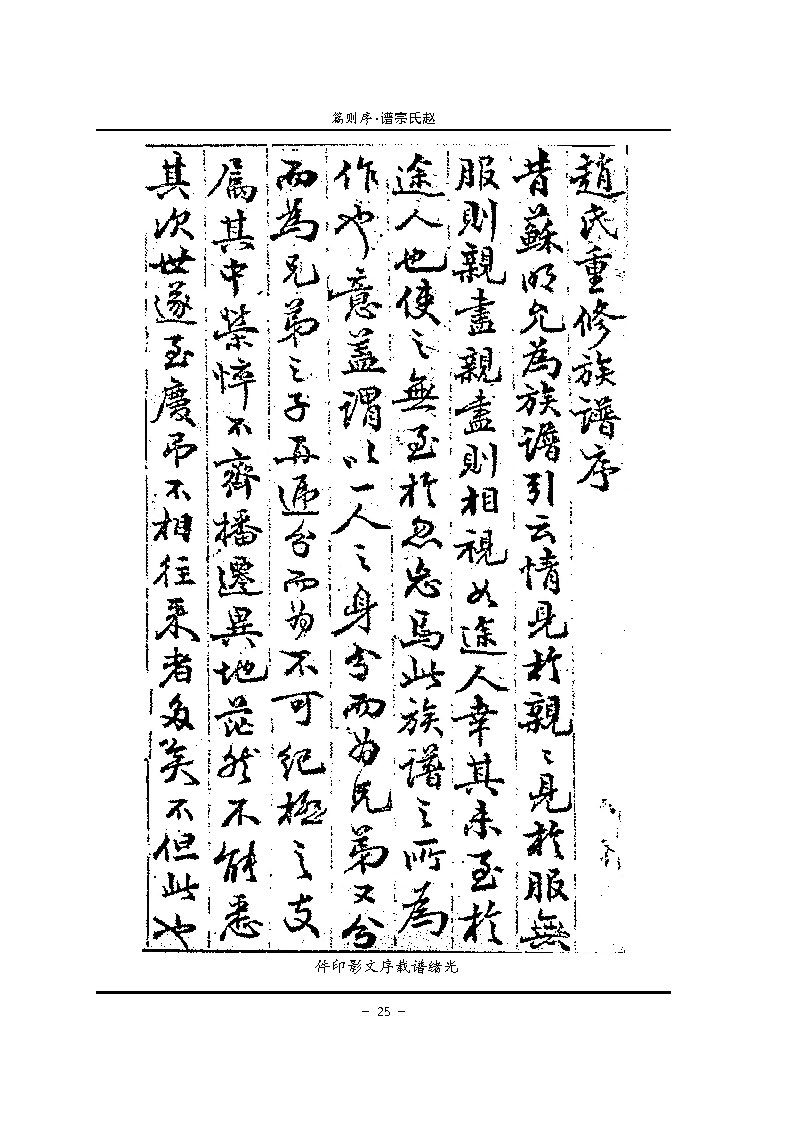 篇则序·谱宗氏赵
趙氏重修族譜序
昔蘇明允為族譜引云情見於親〻見於服無
服則親盡親盡則相視如途人幸其未至於
途人也使之無至於忽忘焉此族譜之所為
作也意蓋謂以一人之身分而為兄弟又分
而為兄弟之子再遞分而為不可紀極之支
属其中榮悴不齊播遷異地茫然不能悉
其次世遂至慶吊不相往来者多矣不但此也
件印影文序载谱绪光
- 25 -